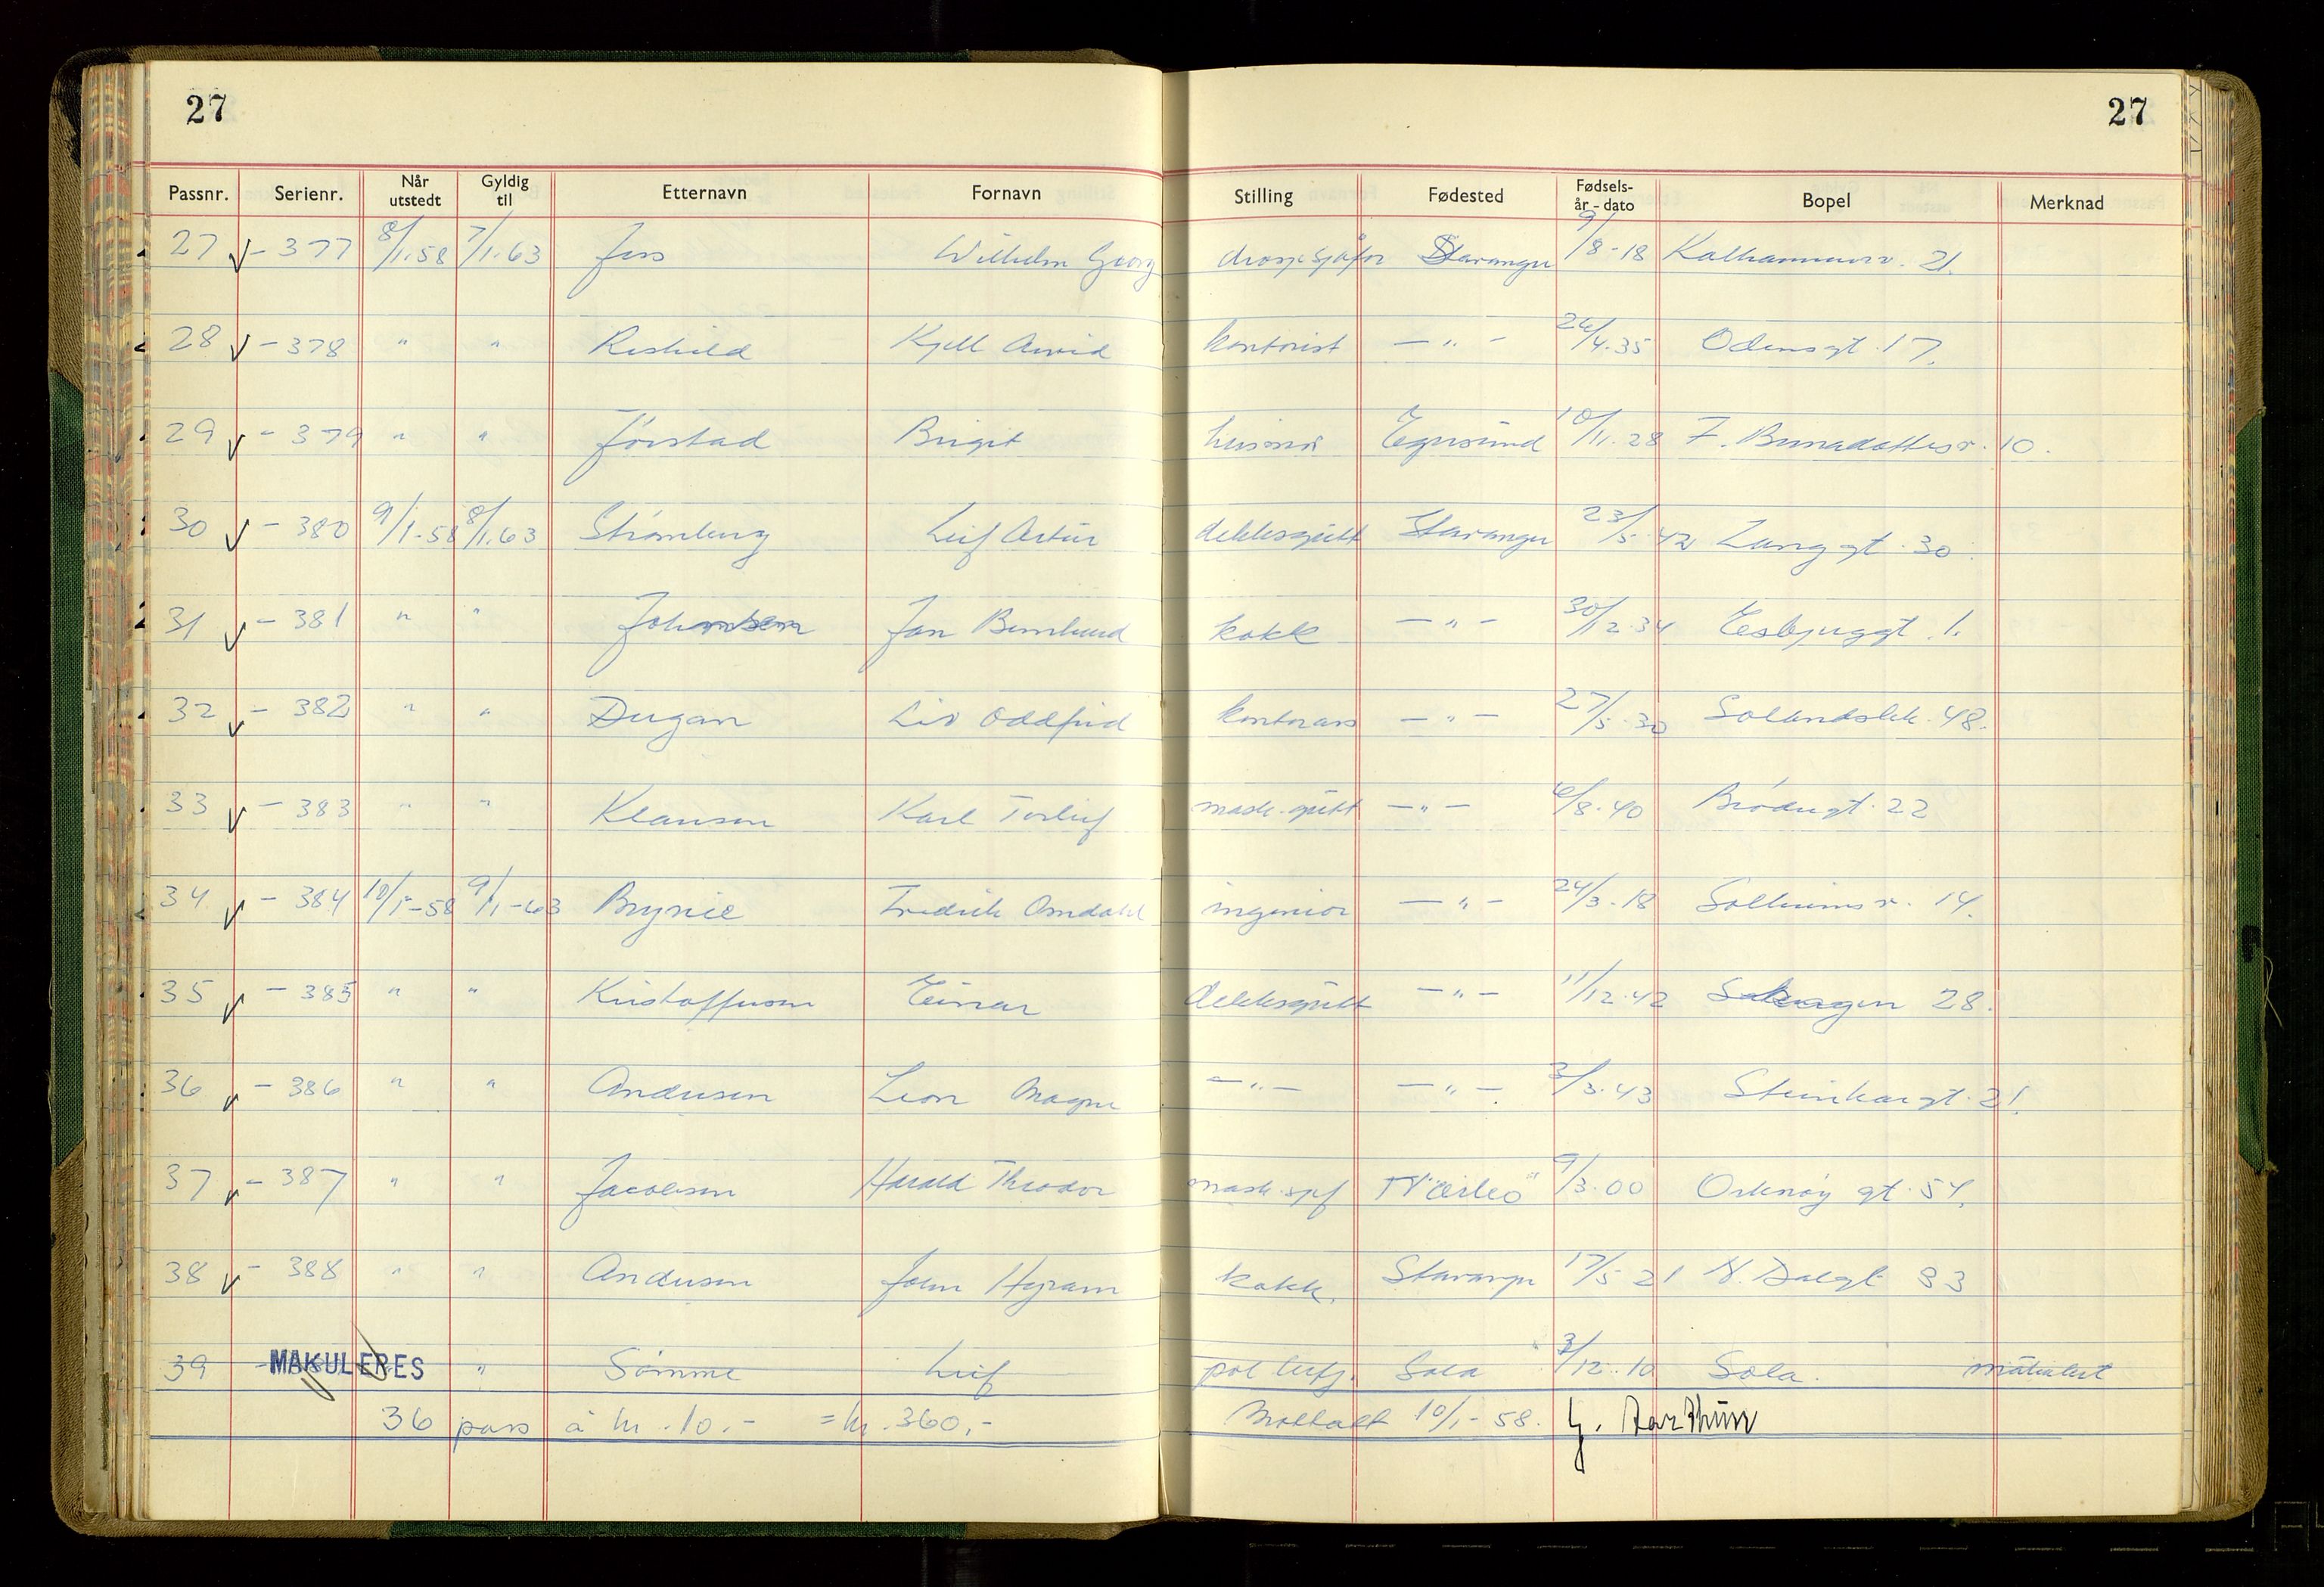 27 27
Passnr. Serienr. Når utstedt Gyldig til Etternavn Fornavn Stilling Fødested Fødsels-år - dato Bopel Merknad
27 - 377 8/1.58 7/1.63 Jess Wilhelm Georg drosjesjåfør Stavanger 9/8-18 Kalhammerv. 21.
28 - 378 " " Kjell Arvid kontorist — " — 26/4.35 Odinsgt. 17.
29 - 379 " " Jørstad Birgit husmor Egersund 10/11.28 F. Bernadottesv. 10.
30 - 380 9/1-58 8/1.63 Strømberg Leif Artur dekksgutt Stavanger 23/5.42 Langgt. 30.
31 - 381 " " Johnsen Jan Bernhard kokk — " — 30/12.34 Esbjerggt. 1.
32 - 382 " " Dugan Liv Oddfrid kontorass — " — 27/5.30 48.
33 - 383 " " Klausen Karl Torleif mask.gutt — " — 6/8.40 Brødregt. 22
34 - 384 10/1-58 9/1-63 Brynie Fredrik Omdahl ingeniør — " — 24/3.18 Solheimsv. 14.
35 - 385 " " Kristoffersen Einar dekksgutt — " — 11/12.42 Skagen 28.
36 - 386 " " Andersen Leon Magne — " — — " — 3/3.43 Steinkargt. 21.
37 - 387 " " Jacobsen Harald Theodor mask.sjef "Nærbø" 9/3.00 Orknøygt. 54.
38 - 388 " " Andersen John Hyram kokk. Stavanger 17/5 21 N. Dalgt 33
39 MAKULERES " Sømme Leif pol.betj. Sola 3/12.10 Sola. makulert
36 pass à kr. 10.- = kr. 360,- Mottatt 10/1-58.